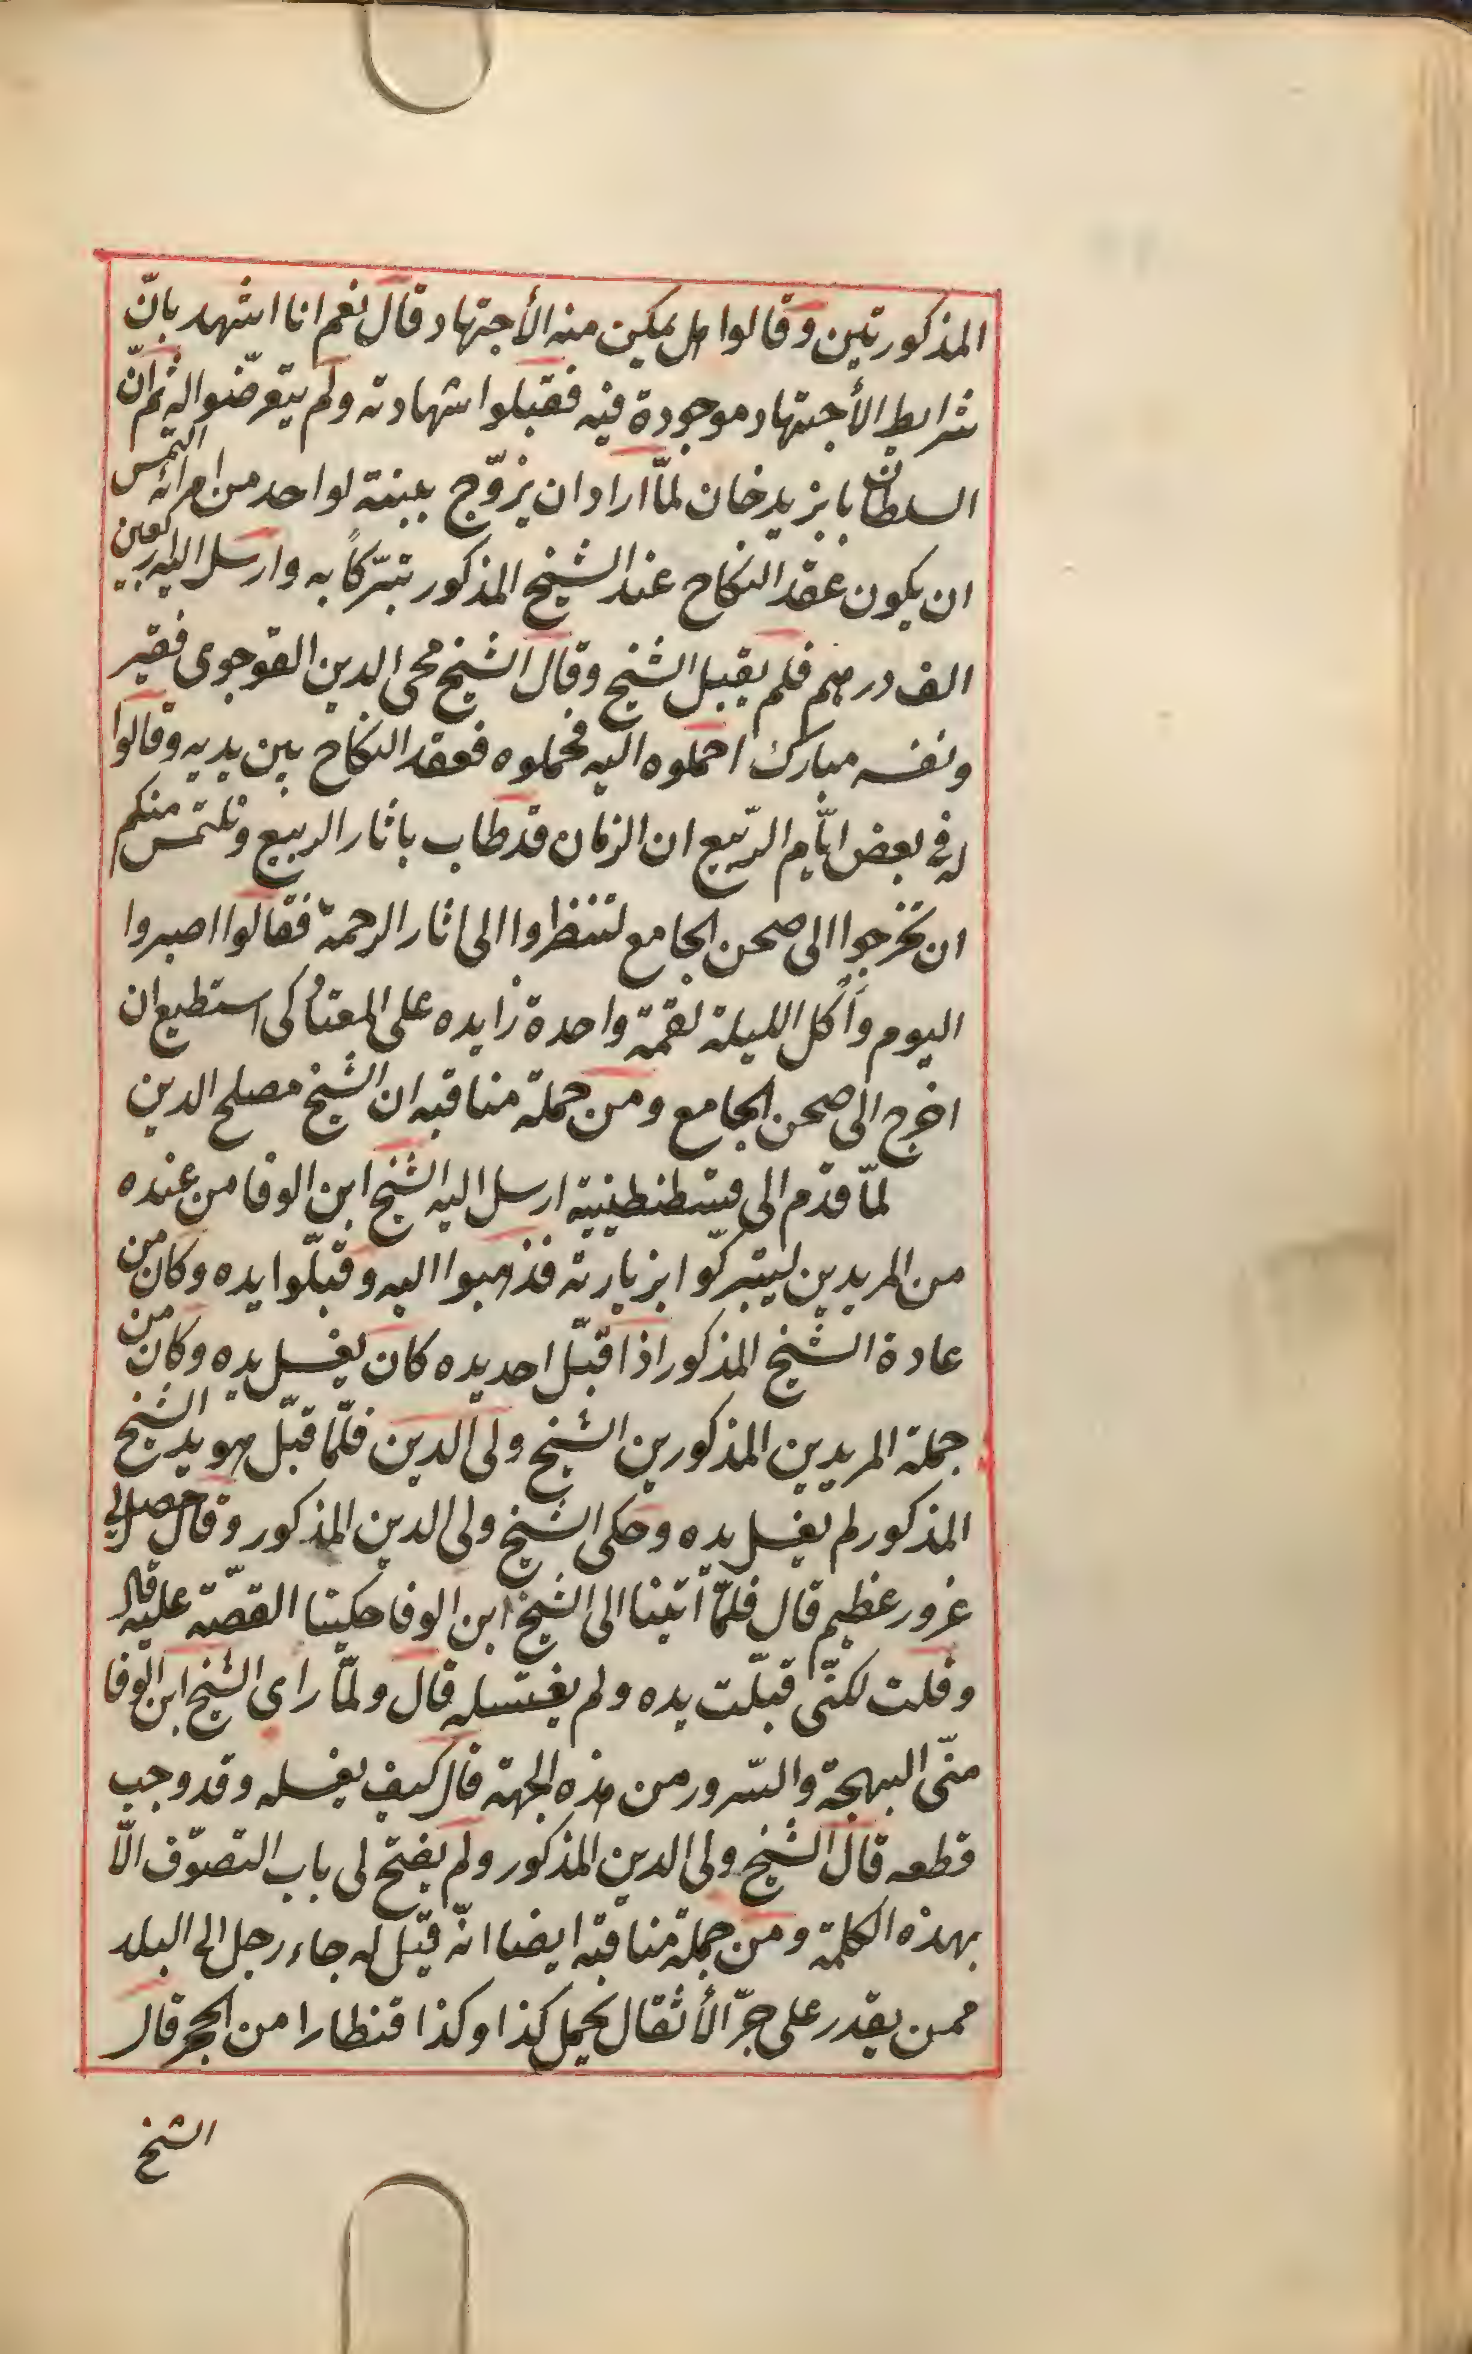 المذكورتين وقالوا هل يمكن منه الأجتهاد قال نعم انا اشهد بانّ
شرايط الأجتهاد موجودة فيه فقبلوا شهادته ولم يتعرّضوا له ثم انّ
السلطان بايزيد خان لمّا اراد ان يزوّج ببنته لواحد من امرائه التمس
ان يكون عقد النكاح عند الشيخ المذكور تبرّكاً به وارسل اليه اربعين
الف درهم فلم يقبل الشيخ وقال الشيخ محى الدين القوجوى فقير
ونفسه مبارك احملوه اليه فحملوه فعقد النكاح بين يديه وقالوا
له في بعض ايّام الرّبيع ان الزمان قد طاب باثار الربيع ونلتمس منكم
ان تخرجوا الى صحن الجامع لتنظروا الى اثار الرحمة فقالوا اصبروا
اليوم وآكل الليلة لقمة واحدة زايده على المعتاد كى استطيع ان
اخرج الى صحن الجامع ومن جملة مناقبه ان الشيخ مصلح الدين
لمّا قدم الى قسطنطينية ارسل اليه الشيخ ابن الوفا من عنده
من المريدين ليتبركّوا بزيارته فذهبوا اليه وقبّلوا يده وكان من
عادة الشيخ المذكور اذا قبّل احد يده كان يغسل يده وكان من
جملة المريدين المذكورين الشيخ ولى الدين فلمّا قبّل هو يد الشيخ
المذكور لم يغسل يده وحكى الشيخ ولى الدين المذكور وقال حصل لي
غرور عظيم قال فلمّا أتينا الى الشيخ ابن الوفا حكيتا القصّة عليه قال
وقلت لكنّى قبّلت يده ولم يغتسله قال ولمّا راى الشيخ ابن الوفا
منّى البهجة والسّرور من هذه الجهة قال كيف يغسله وقد وجب
قطعه قال الشيخ ولى الدين المذكور ولم يفتح لى باب التصوّف الّا
بهذه الكلمة ومن جملة مناقبه ايضا انّه قيّل له جاء رجل الى البلد
ممن يقدر على جرّ الأثقال يحمل كذا وكذا قنطارا من الحجر قال
الشيخ